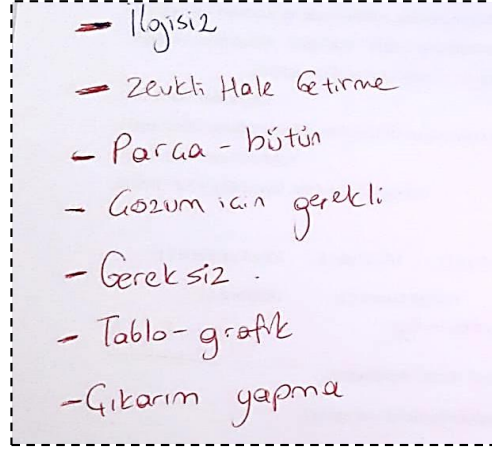 - İlgisiz
- Zevkli Hale Getirme
- Parça - bütün
- Çözüm için gerekli
- Gereksiz.
- Tablo - grafik
- Çıkarım yapma